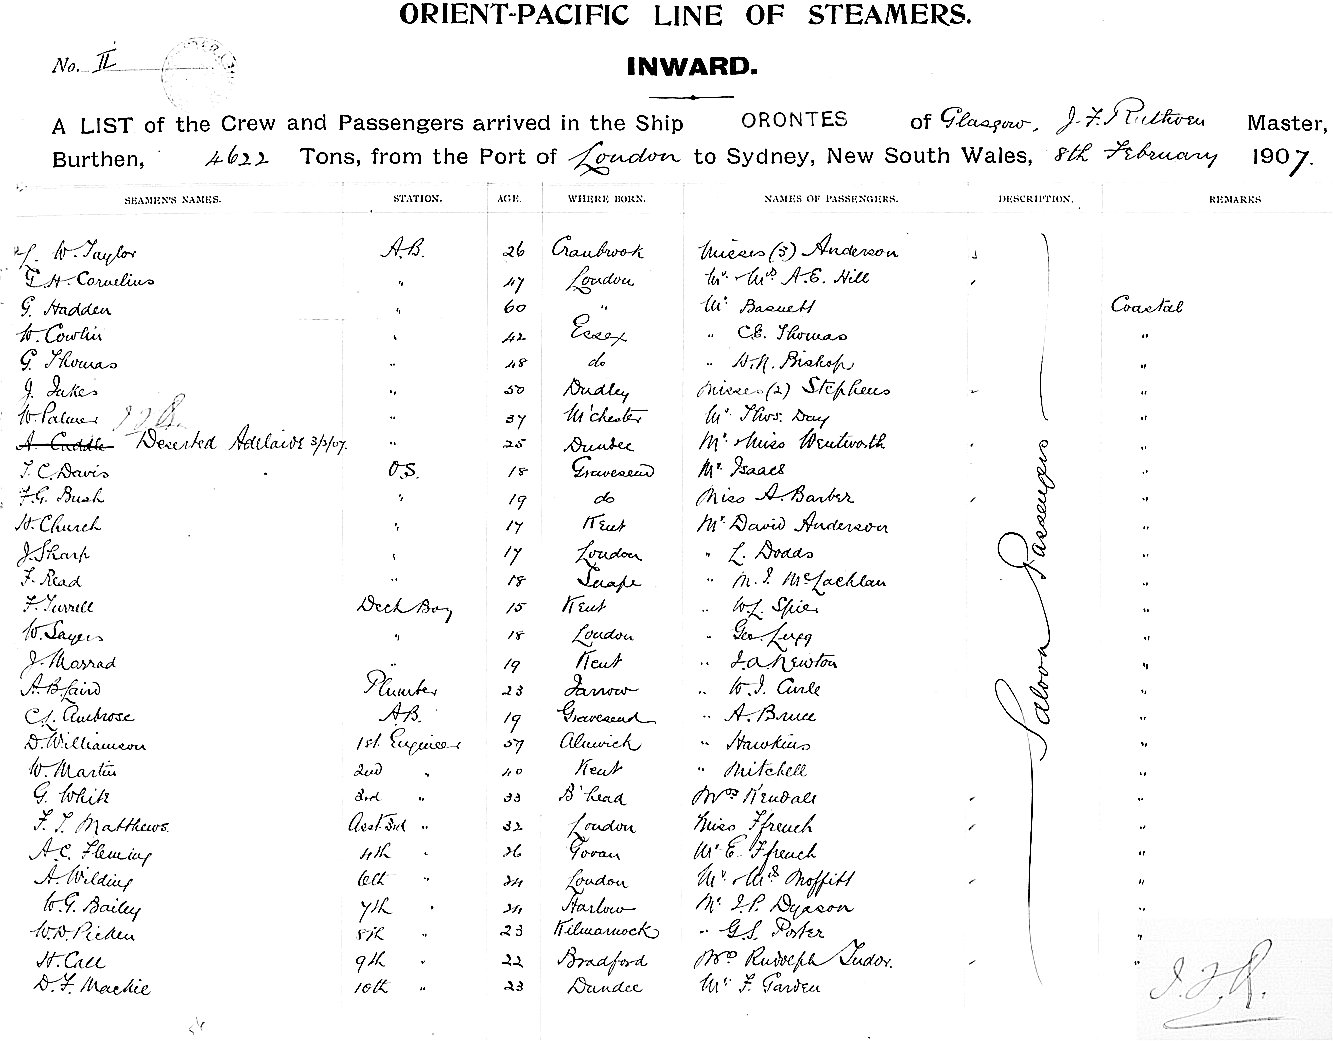 ORIENT-PACIFIC LINE OF STEAMERS.
No. II
INWARD.
A LIST of the Crew and Passengers arrived in the Ship ORONTES of Glasgow, J. F. Ruthven Master,
Burthen, 4622 Tons, from the Port of London to Sydney, New South Wales, 8th February 1907.
SEAMEN'S NAMES. STATION. AGE. WHERE BORN. NAMES OF PASSENGERS. DESCRIPTION. REMARKS
W. Taylor A.B. 26 Cranbrook Misses (3) Anderson
G. H. Cornelius " 47 London Mr. & Mrs A.E. Hill
G. Hadden " 60 " Mr Basnett Coastal
W. Cowlin " 42 Essex " C.E. Thomas "
G. Thomas " 48 do " A.N. Bishop "
J. Jukes " 50 Dudley Misses (2) Stephens "
W. Palmer " 37 M'chester Mr Thos. Day "
A. Caddle Deserted Adelaide 3/2/07. " 25 Dundee Mr & Miss Wentworth "
T. C. Davis O.S. 18 Gravesend Mr. Isaacs "
F. G. Bush " 19 do Miss A. Barber "
H. Church " 17 Kent Mr David Anderson "
J. Sharp " 17 London " L. Dodds "
F. Read " 18 Snape " N. J. McLachlan "
F. Turrell Deck Boy 15 Kent " W.L. Spier "
W. Sayers " 18 London " Geo. "
J. Marrad " 19 Kent " J. A. Newton "
A. B. Laird Plumber 23 Jarrow " W. J. Curle "
C. L. Ambrose A.B. 19 Gravesend " A. Bruce "
D. Williamson 1st Engineer 57 Alnwick " Hawkins "
W. Martin 2nd " 40 Kent " Mitchell "
G. White 3rd " 33 B'head Mrs Kendall "
F. T. Matthews. Asst 3rd " 32 London Miss Ffrench "
A. C. Fleming 4th " 26 Govan Mr E. Ffrench "
A. Wilding 6th " 24 London Mr & Mrs Moffitt "
W. G. Bailey 7th " 24 Harlow Mr J. P. Dyason "
W. D. Picken 8th " 23 Kilmarnock " G.S. Porter "
H. Call 9th " 22 Bradford Mrs Rudolph Tudor. "
D. F. Mackie 10th " 23 Dundee Mr F. Garden
Saloon Passengers
J. F. R.